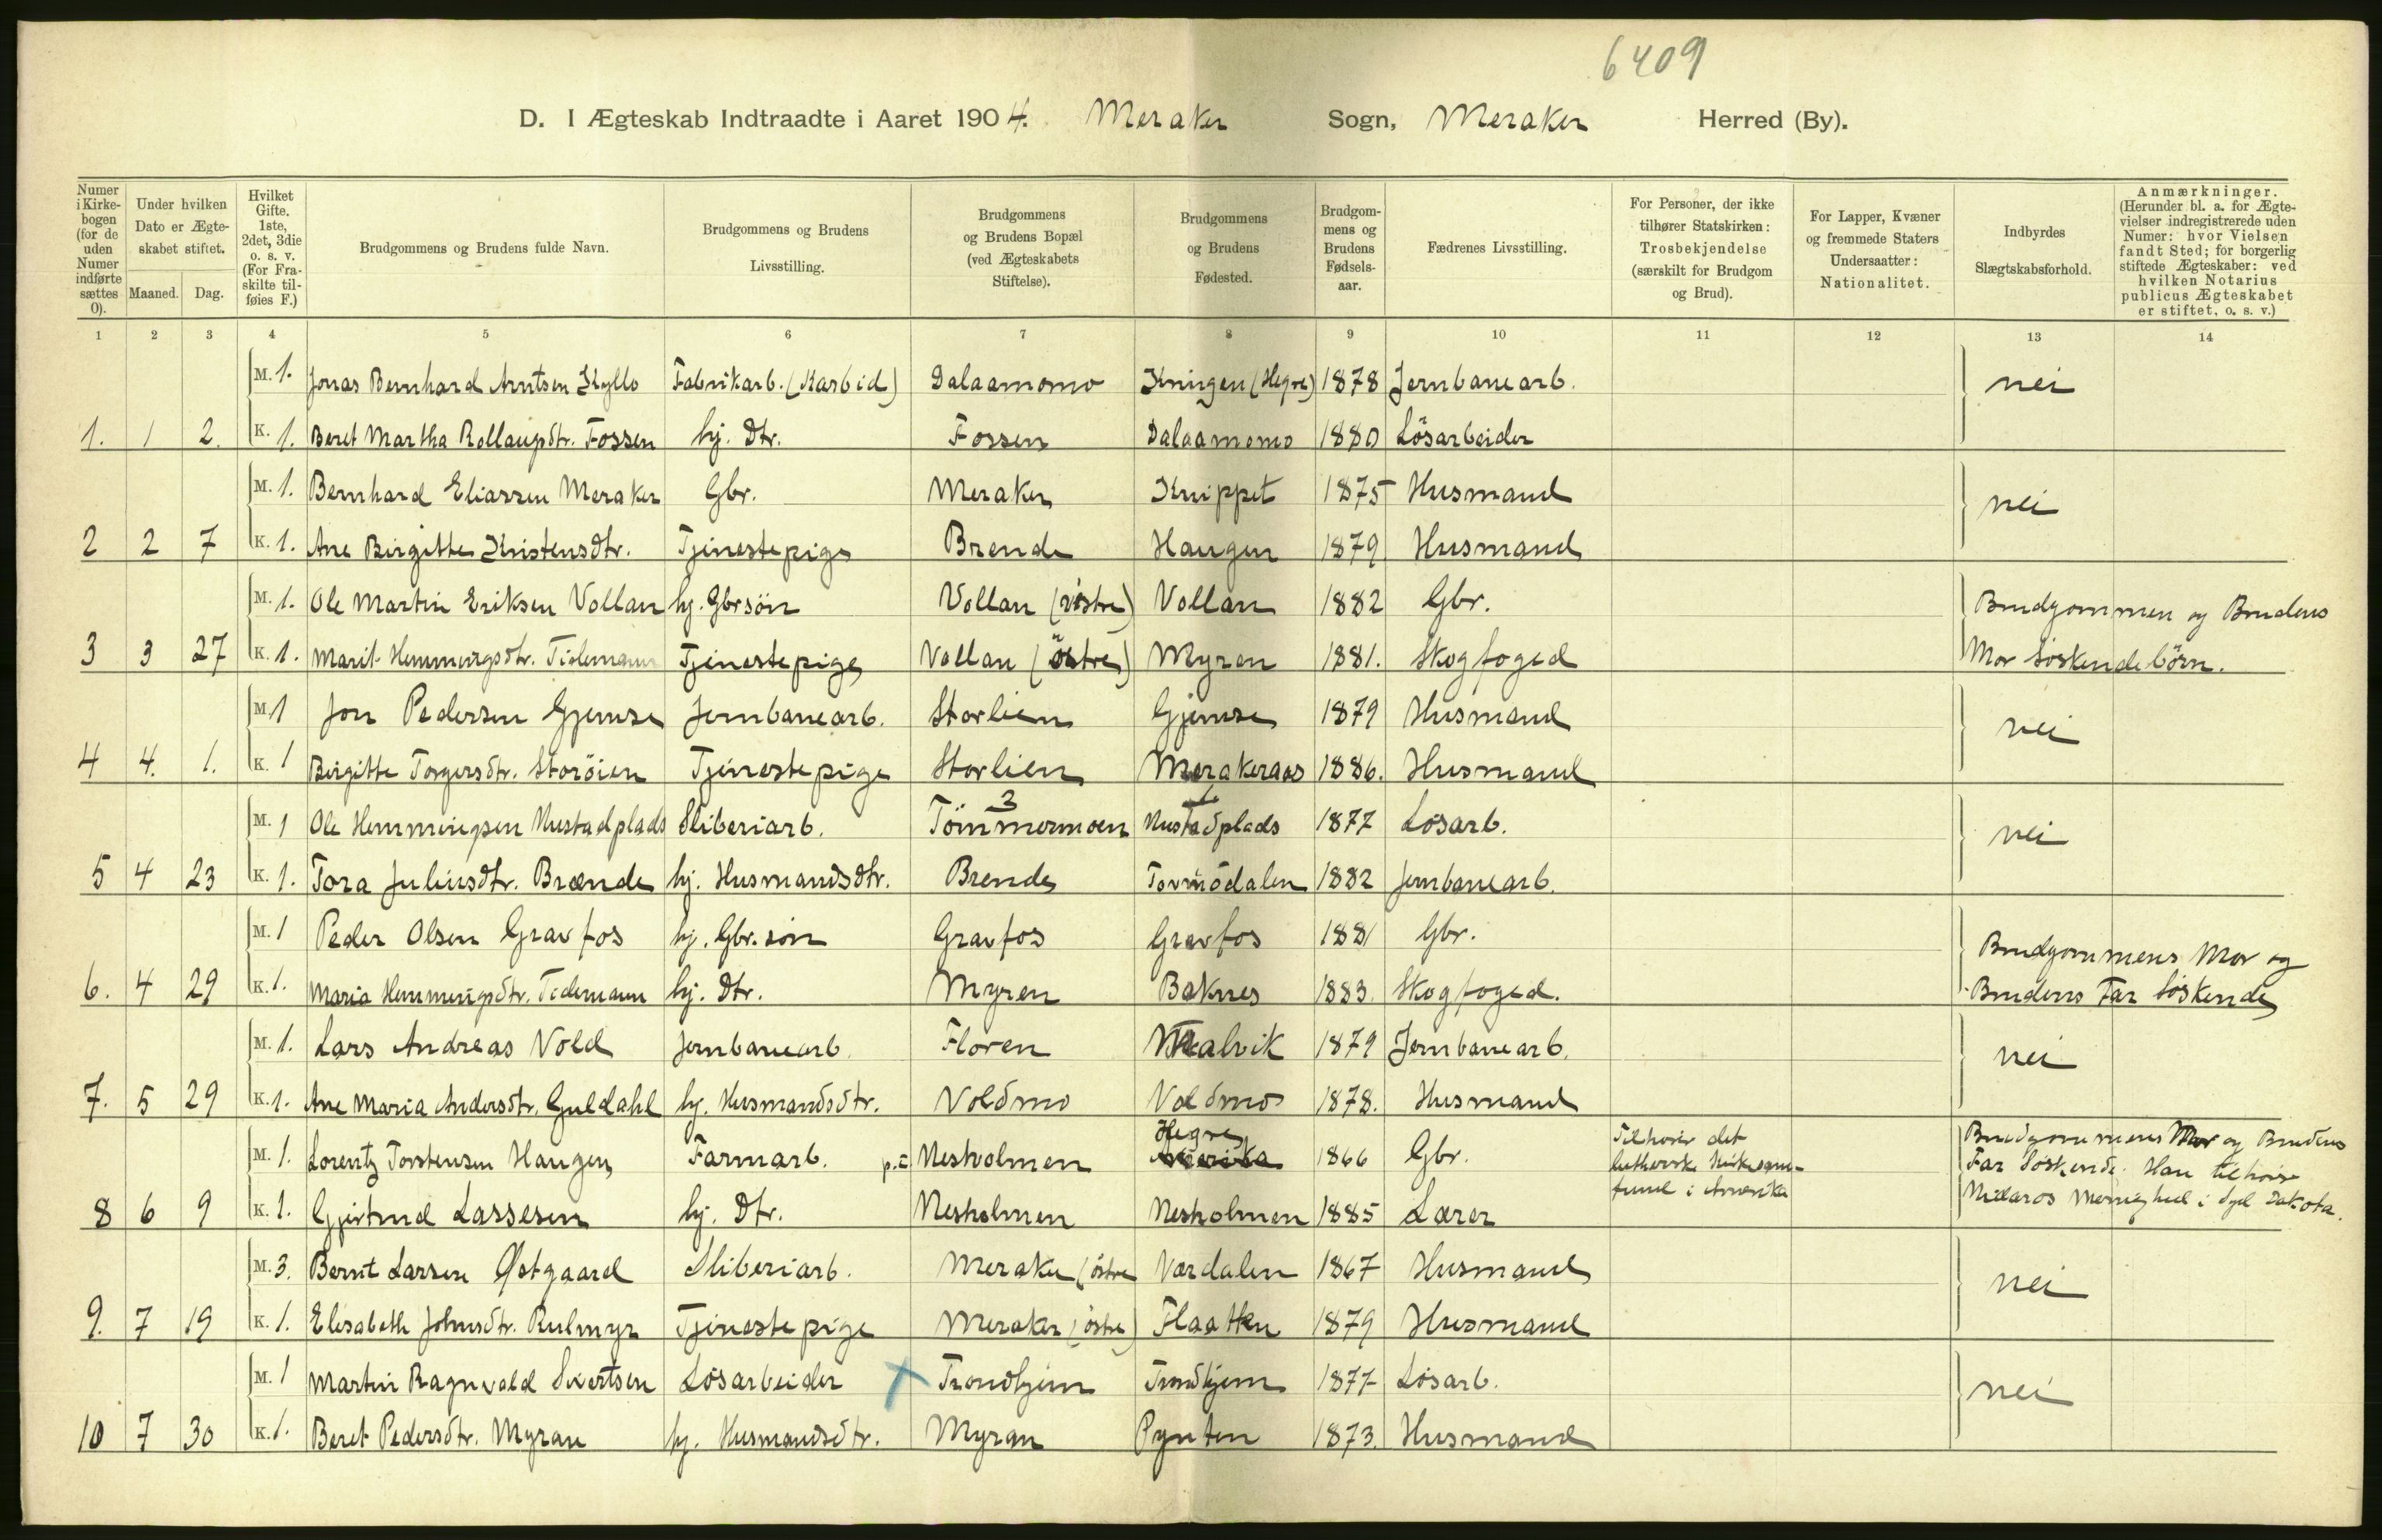 6409
D. I Ægteskab Indtraadte i Aaret 1904. Meraker Sogn, Meraker Herred (By).
Numer i Kirkebogen (for de uden Numer indførte sættes 0).
Under hvilken Dato er Ægteskabet stiftet.
Maaned. Dag.
Hvilket Gifte. 1ste, 2det, 3die o. s. v. (For Fraskilte tilføies F.)
Brudgommens og Brudens fulde Navn.
Brudgommens og Brudens Livsstilling.
Brudgommens og Brudens Bopæl (ved Ægteskabets Stiftelse).
Brudgommens og Brudens Fødested.
Brudgommens og Brudens Fødselsaar.
Fædrenes Livsstilling.
For Personer, der ikke tilhører Statskirken: Trosbekjendelse (særskilt for Brudgom og Brud).
For Lapper, Kvæner og fremmede Staters Undersaatter: Nationalitet.
Indbyrdes Slægtskabsforhold.
Anmærkninger. (Herunder bl. a. for Ægtevielser indregistrerede uden Numer: hvor Vielsen fandt Sted; for borgerlig stiftede Ægteskaber: ved hvilken Notarius publicus Ægteskabet er stiftet, o. s. v.)
1 2 3 4 5 6 7 8 9 10 11 12 13 14
M. 1. Jonas Bernhard Arntsen Kyllo Fabrikarb. (Karbid) Dalaamomo (Hegre) 1878 Jernbanearb. nei
1. 1 2. K. 1. Beret Martha Rollaugsdtr. Fossen hj. Dtr. Fossen Dalaamomo 1880 Lösarbeider
M. 1. Bernhard Eliassen Meraker Gbr. Meraker Knippet 1875 Husmand nei
2 2 7 K. 1. Ane Birgitte Kristensdtr. Tjenestepige Brende Haugen 1879 Husmand
M. 1. Ole Martin Eriksen Vollan hj. Gbrsön Vollan (östre) Vollan 1882 Gbr. Brudgommen og Brudens
3 3 27 K. 1. Marit Hemmingsdtr. Tidemann Tjenestepige Vollan (östre) Myren 1881. Skogfoged Mor Söskendebörn.
M. 1 Jon Pedersen Gjemse Jernbanearb. Storlien Gjemse 1879 Husmand nei
4 4. 1. K. 1 Birgitte Torgersdtr. Storöien Tjenestepige Storlien Merakeraas 1886. Husmand
M. 1 Ole Hemmingsen Nustadplads Sliberiarb. Tömmermoen Nustadplads 1877 Lösarb. nei
5 4 23 K. 1. Tora Juliusdtr. Brænde hj. Husmandsdtr. Brende Tovmodalen 1882 Jernbanearb.
M. 1 Peder Olsen Gravfos hj. Gbr.sön Gravfos Gravfos 1881 Gbr. Brudgommens Mor og
6. 4 29 K. 1. Maria Hemmingsdtr. Tidemann hj. Dtr. Myren Baknes 1883. Skogfoged. Brudens Far Söskende
M. 1. Lars Andreas Vold Jernbanearb. Floren 1879 Jernbanearb. nei
7. 5 29 K. 1. Ane Maria Andersdtr. Guldahl hj. Husmandsdtr. Voldmo Voldmo 1878. Husmand
M. 1. Lorentz Torstensen Haugen Farmarb. Nesholmen Hegre Amerika 1866 Gbr. Tilhörer det lutherske Kirkesamfund i Amerika Brudgommens Mor og Brudens Far Söskende. Han tilhörer
8 6 9 K. 1. Gjertrud Lassesen hj. Dtr. Nesholmen Nesholmen 1885 Lærer Nidaros Menighed i Syd Dakota.
M. 3. Bernt Larsen Østgaard Sliberiarb. Meraker (östre Værdalen 1867 Husmand nei
9. 7 19 K. 1. Elisabeth Johnsdtr. Rulmyr Tjenestepige Meraker (östre) Flaatten 1879 Husmand
M. 1 Martin Ragnvald Sivertsen Lösarbeider Trondhjem Trondhjem 1877 Lösarb. nei
10 7 30 K. 1. Beret Pedersdtr. Myran hj. Husmandsdtr. Myran Pynten 1873. Husmand